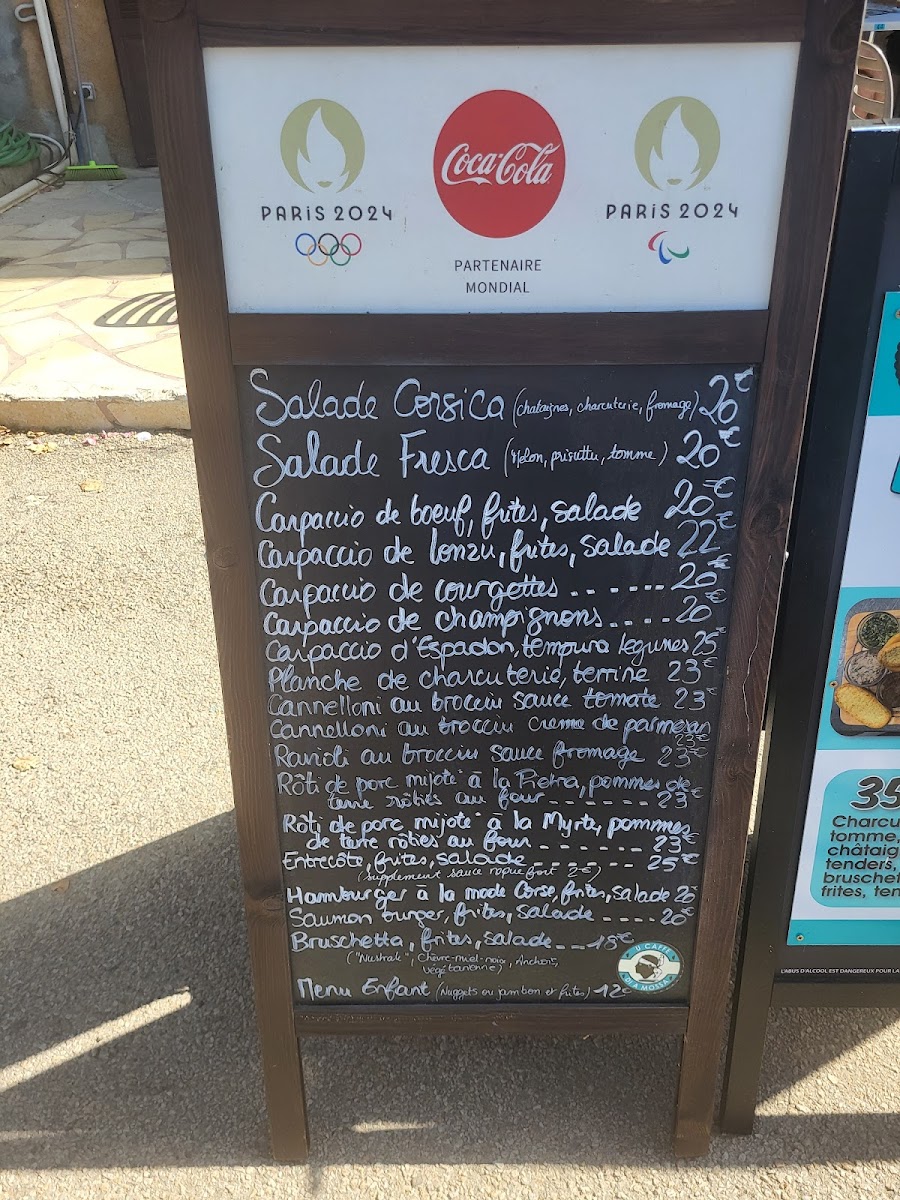 PARIS 2024
Coca-Cola
PARIS 2024
PARTENAIRE
MONDIAL
Salade Corsica (chataignes, charcuterie, fromage) 20€
Salade Fresca (Melon, prisuttu, tomme) 20€
Carpaccio de boeuf, frites, salade 20€
Carpaccio de lonzu, frites, salade 22€
Carpaccio de courgettes ...... 20€
Carpaccio de champignons .... 20€
Carpaccio d'Espadon, tempura legumes 25€
Planche de charcuterie, terrine 23€
Cannelloni au brocciu sauce tomate 23€
Cannelloni au brocciu creme de parmesan
23€
Ravioli au brocciu sauce fromage 23€
Rôti de porc mijoté à la Pietra, pommes de
terre rôties au four ------- 23€
Rôti de porc mijoté à la Myrta, pommes
de terre rôties au four ------- 23€
Entrecôte, frites, salade ------ 25€
(supplement sauce roquefort 2€)
Hamburger à la mode Corse, frites, salade
Saumon burger, frites, salade ---- 20€
Bruschetta, frites, salade --- 18€
("Nustrale", Chèvre-miel-noix, Anchois,
végétarienne)
Menu Enfant (Nuggets ou jambon et frites) 12€
U CAFFE
DI A MOSSA
35
Charcu
tomme,
châtaig
tenders,
bruschet
frites, ten
L'ABUS D'ALCOOL EST DANGEREUX POUR LA